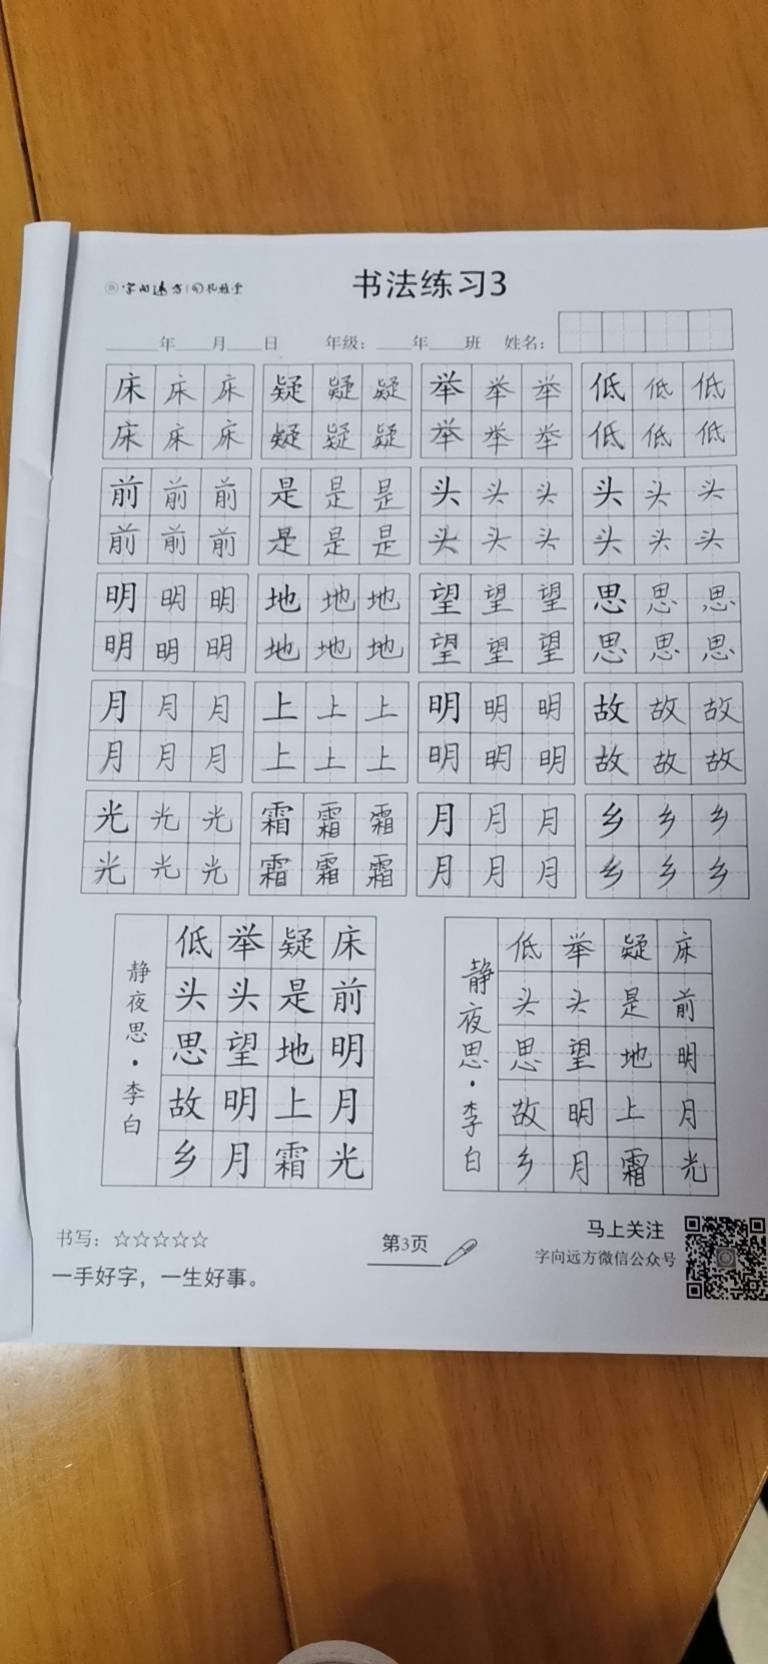 字向远方
书法练习3
年 月 日 年级： 年 班 姓名：
床床床 疑疑疑 举举举 低低低
床床床 疑疑疑 举举举 低低低
前前前 是是是 头头头 头头头
前前前 是是是 头头头 头头头
明明明 地地地 望望望 思思思
明明明 地地地 望望望 思思思
月月月 上上上 明明明 故故故
月月月 上上上 明明明 故故故
光光光 霜霜霜 月月月 乡乡乡
光光光 霜霜霜 月月月 乡乡乡
静夜思·李白
床前明月光
疑是地上霜
举头望明月
低头思故乡
静夜思·李白
床前明月光
疑是地上霜
举头望明月
低头思故乡
书写：☆☆☆☆☆
一手好字，一生好事。
第3页
马上关注
字向远方微信公众号